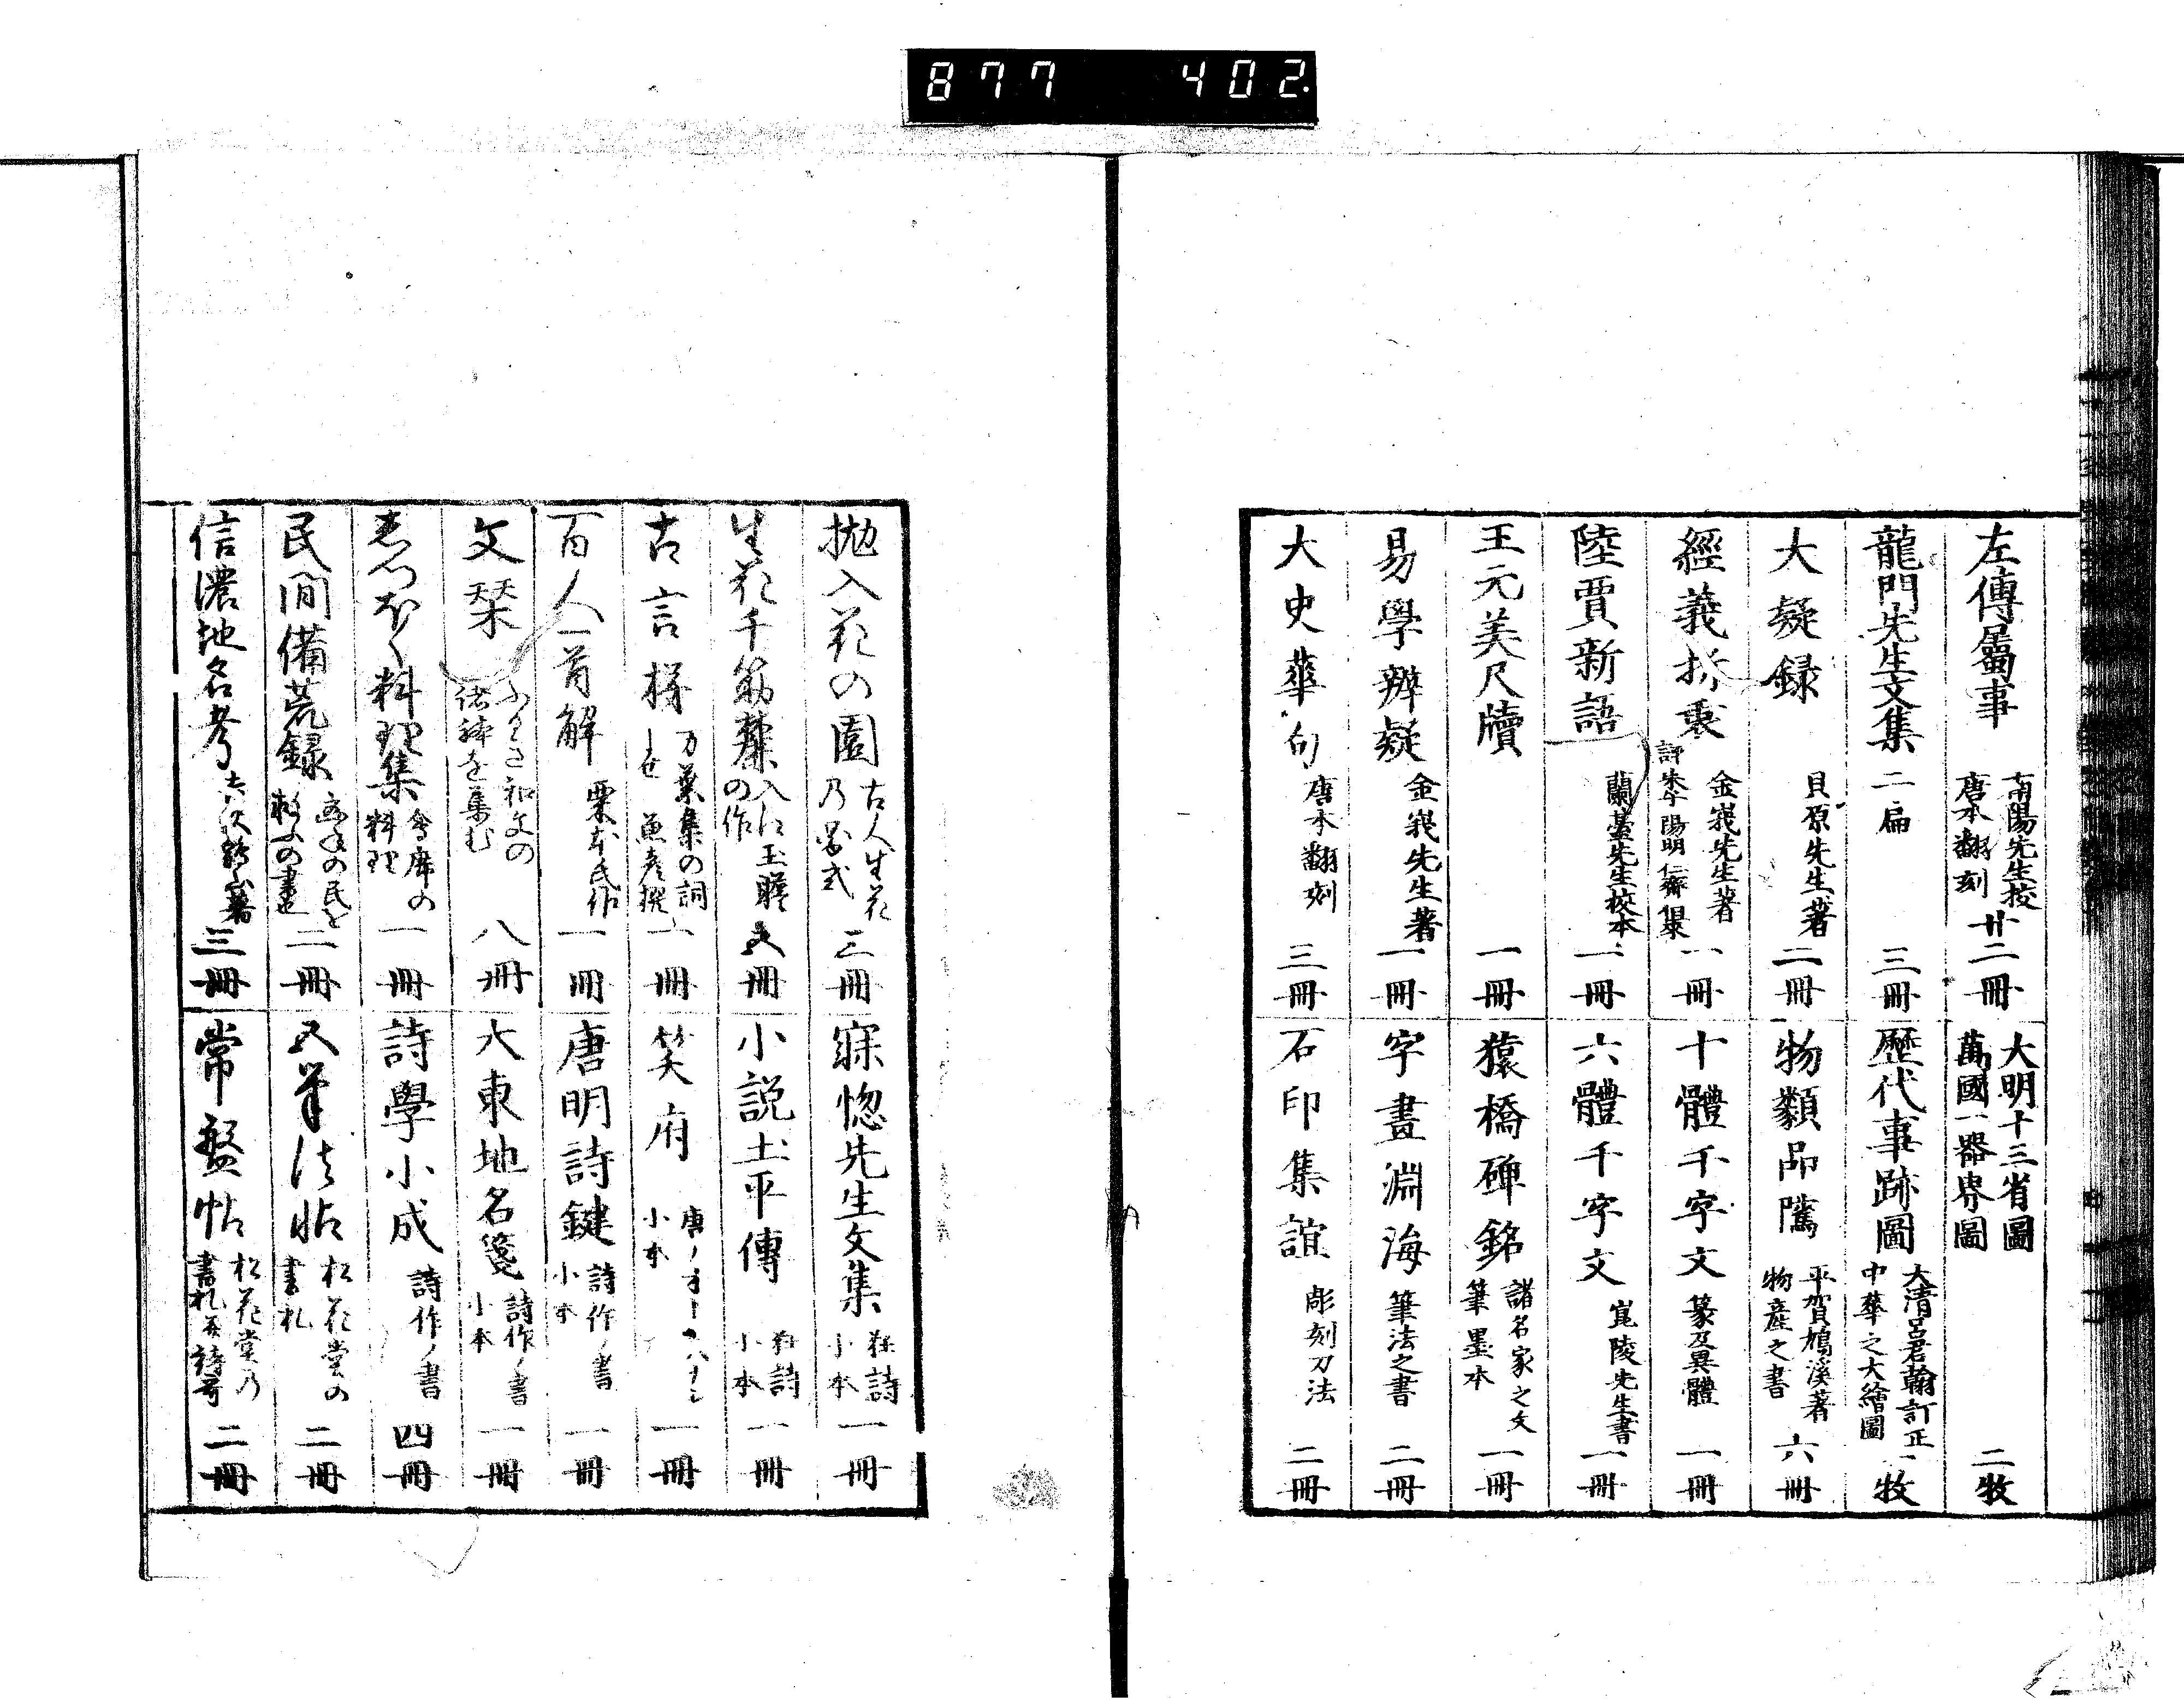 877 402
左傳屬事 南陽先生挍 唐本翻刻 廿二冊
龍門先生文集 二扁 三冊
大疑録 貝原先生著 二冊
經義折衷 金峩先生著 評朱子陽明仁齋徂徠 一冊
陸賈新語 蘭臺先生校本 一冊
王元美尺牘 一冊
易學辨疑 金峩先生著 一冊
大史華句 唐本翻刻 三冊
大明十三省圖 萬國一器界圖 二牧
歴代事跡圖 大清呂君翰訂正 中華之大繪圖 一牧
物類品隲 平賀鳩溪著 物産之書 六冊
十體千字文 篆及異體 一冊
六體千字文 嵩陵先生書 一冊
猿橋碑銘 諸名家之文 筆墨本 一冊
字畫淵海 筆法之書 二冊
石印集誼 彫刻刀法 二冊
抛入花の園 古人生花乃圖式 三冊
生花千筋麓 入江玉蟾の作 五冊
古言梯 万葉集の詞 魚彦撰 一冊
百人一首解 栗本氏作 一冊
文栞 和文の諸躰を集む 八冊
料理集 會席の料理 一冊
民間備荒録 二冊
信濃地名考 吉沢鶏山著 三冊
寐惚先生文集 狂詩 小本 一冊
小説土平傳 狂詩 小本 一冊
笑府 唐ノオトシハナシ 小本 一冊
唐明詩鍵 詩作ノ書 小本 一冊
大東地名箋 詩作ノ書 小本 一冊
詩學小成 詩作ノ書 四冊
法帖 松花堂の書札 二冊
常盤帖 松花堂乃書札并詩哥 二冊